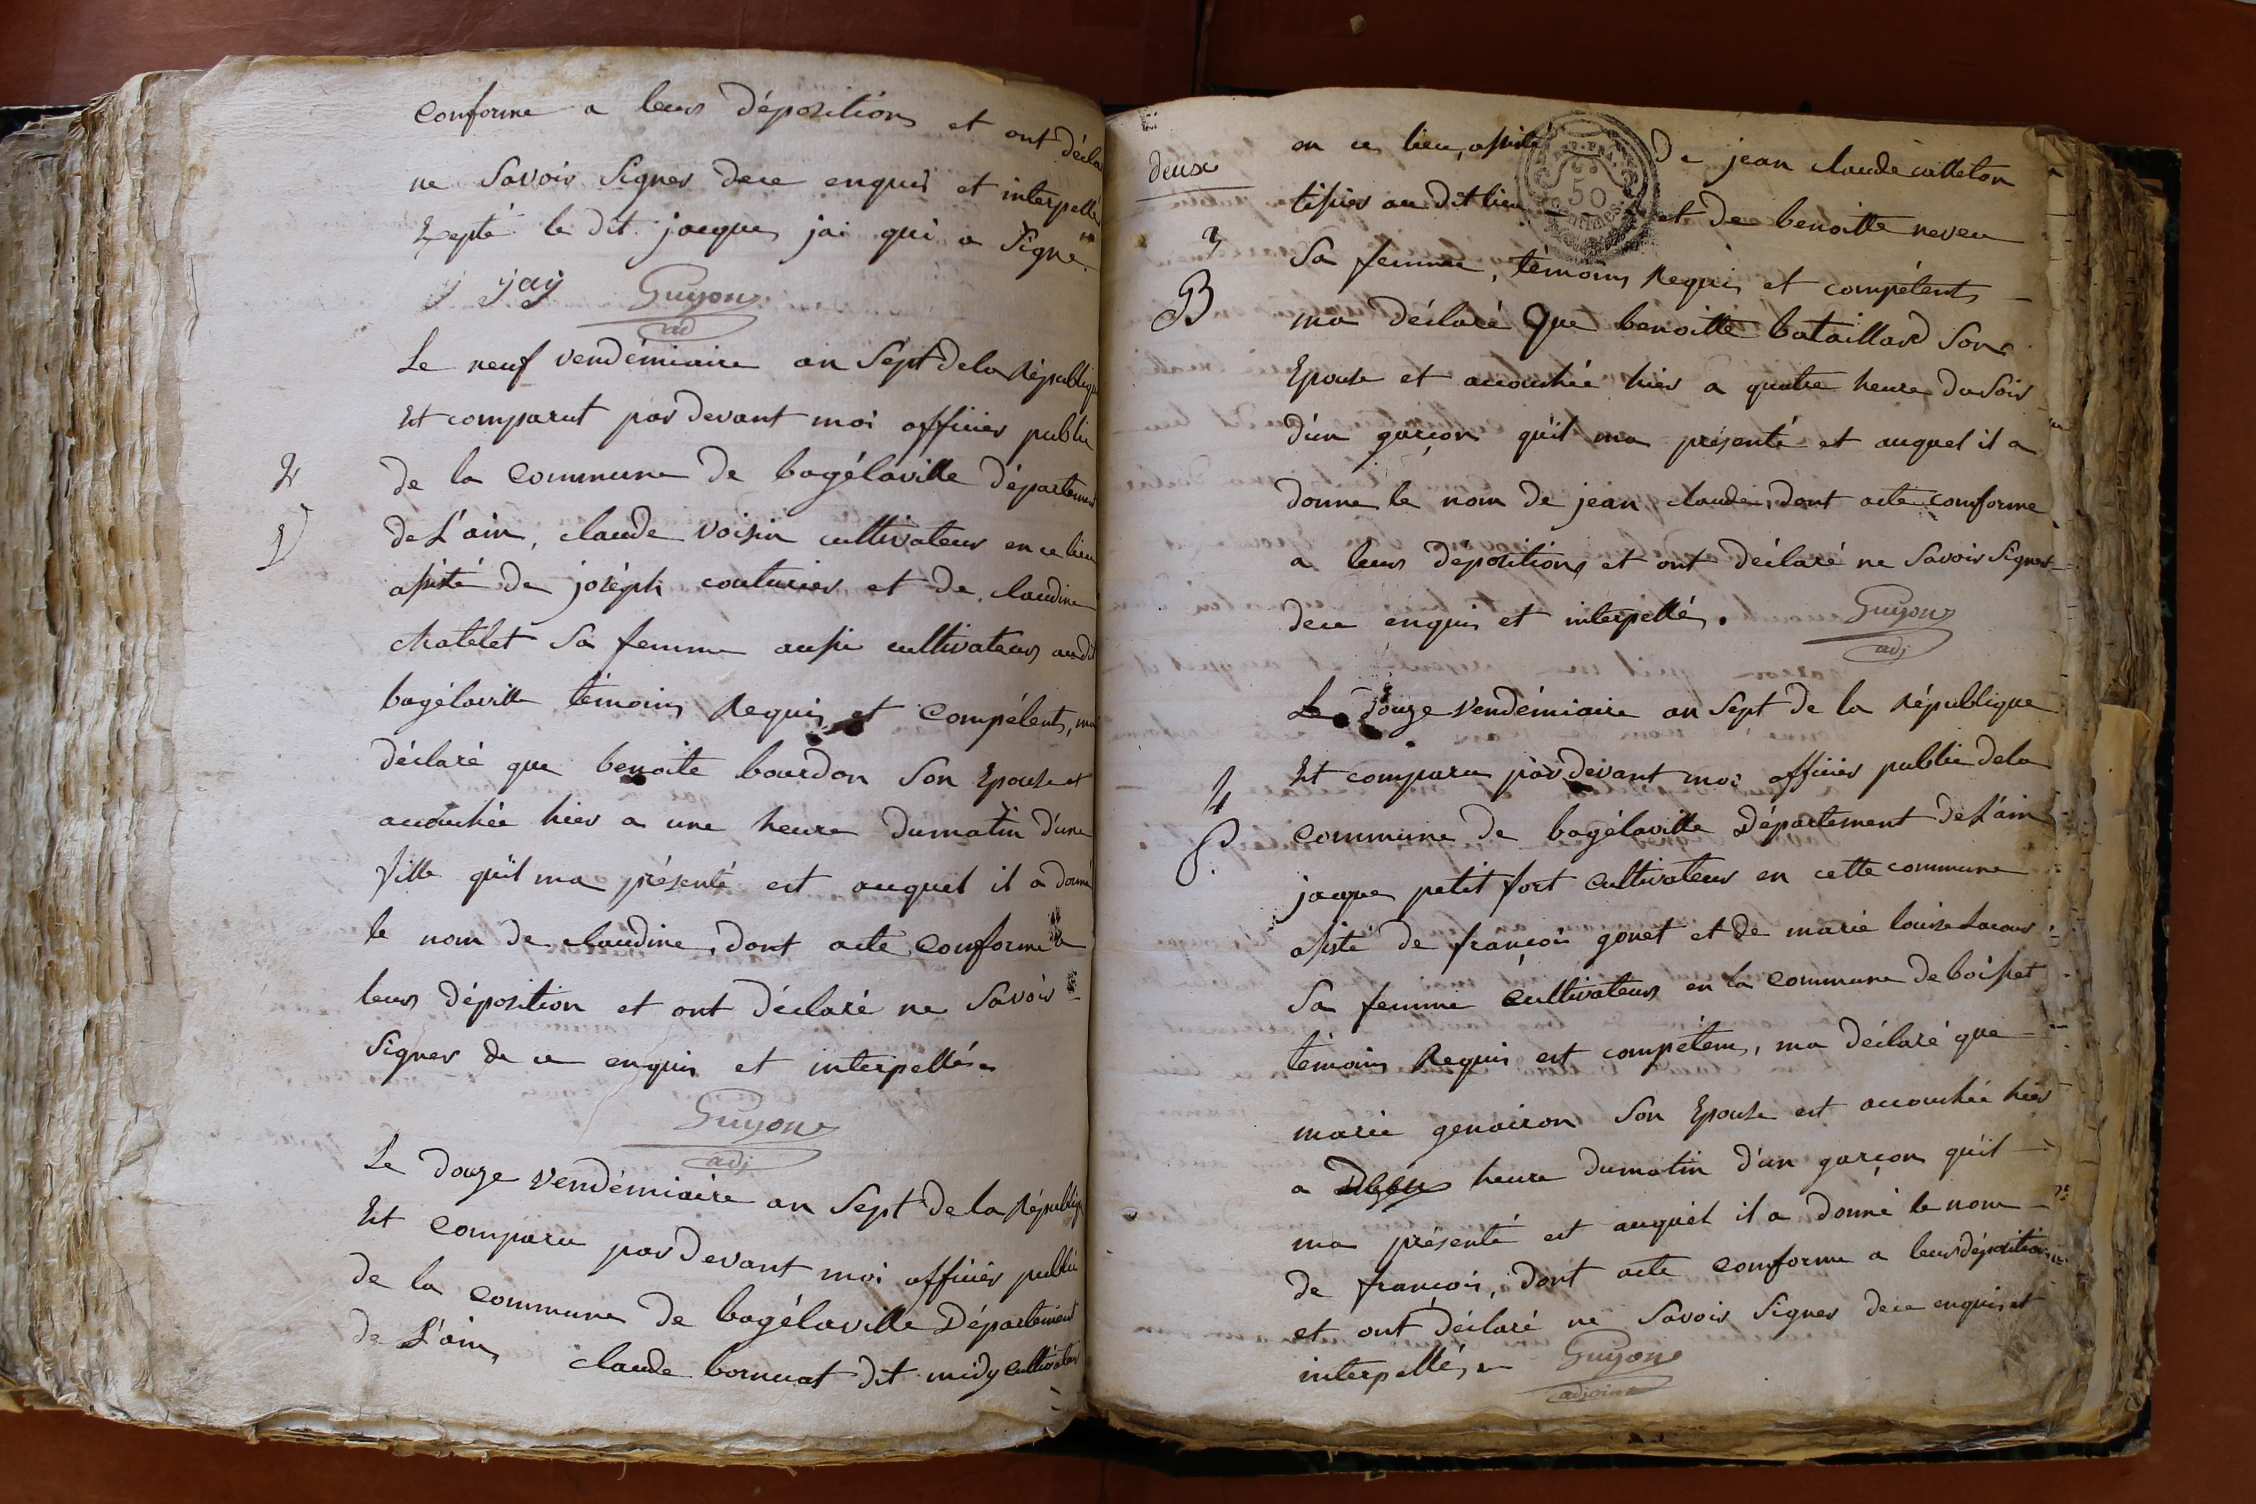 conforme a leurs dépositions et ont décla
ne Savoir Signer de ce enquis et interpellé
Exepté le dit jacques jai qui a Signé
j jay Guyon
ad
Le neuf vendémiaire an Sept de la République
Est comparut par devant moi officier public
2
de la commune de bagélaville département
V
de L'ain, claude voisin cultivateur en ce lieu
assisté de joséph couturier et de claudine
chatelet Sa femme aussi cultivateurs audit
bagélaville témoins Requis et Compétents, ma
déclaré que benoite bourdon Son Epouse et
accouchée hier a une heure dumatin d'une
fille qu'il ma présenté est auquel il a donné
le nom de claudine, dont acte conforme a
leurs déposition et ont déclaré ne Savoir
Signer de ce enquis et interpellés
Guyon
adj
Le douze vendémiaire an Sept de la Républiq
Est comparu par devant moi officier public
de la commune de bagélaville Département
de L'ain claude bornuat dit midy cultivateur
deux
en ce lieu, assisté de jean claude catteton
tissier au dit lieu et de benoitte neveu
50
centimes
3
Sa femme, témoins Requis et compétents
B
ma déclaré Que benoitte bataillard Son
Epouse et accouchée hier a quatre heure du Soir
d'un garçon qu'il ma présenté et auquel il a
donne le nom de jean claude, dont acte conforme
a leurs depositions et ont déclaré ne Savoir Signer
de ce enquis et interpellés.
Guyon
adj
Le douze vendémiaire an Sept de la République
Est comparu par devant moi officier public dela
4
commune de bagélaville Département de L'ain
P.
jacque petit fort cultivateur en cette commune
assisté de françois gonet et de marie louise
Sa femme cultivateurs en la commune de boisset
témoins Requis est compétens, ma déclaré que
marie genairon Son Epouse est accouchée hier
a heure dumatin d'un garçon qu'il
ma présenté est auquel il a donné le nom
de françois, dont acte conforme a leurs dépositions
et ont déclaré ne Savoir Signer de ce enquis et
interpellés
Guyon
adjoint